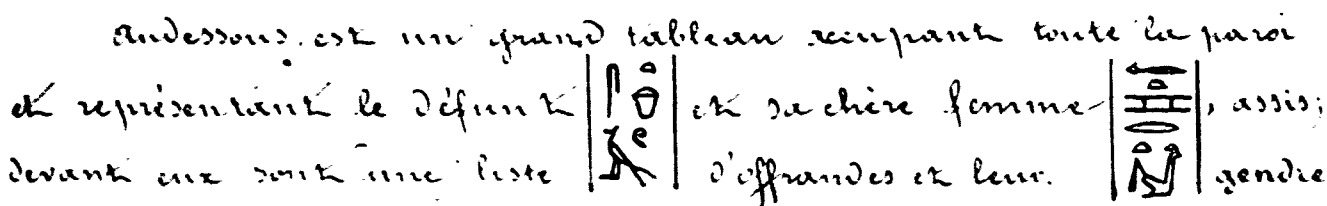 Au dessous, est un grand tableau occupant toute la paroi
et représentant le défunt et sa chère femme , assis;
devant eux sont une liste d'offrandes et leur gendre